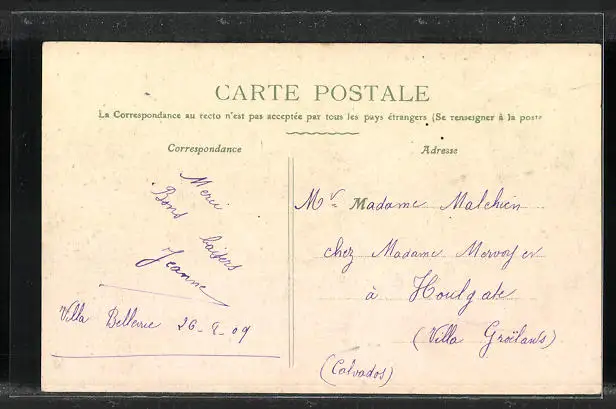 CARTE POSTALE
La Correspondance au recto n'est pas acceptée par tous les pays étrangers (Se renseigner à la poste
Correspondance
Merci
Bons baisers
Jeanne
Villa Bellevue 26-8-09
Adresse
Mr Madame Malchien
chez Madame
à Houlgate
(Villa Groëlans)
(Calvados)